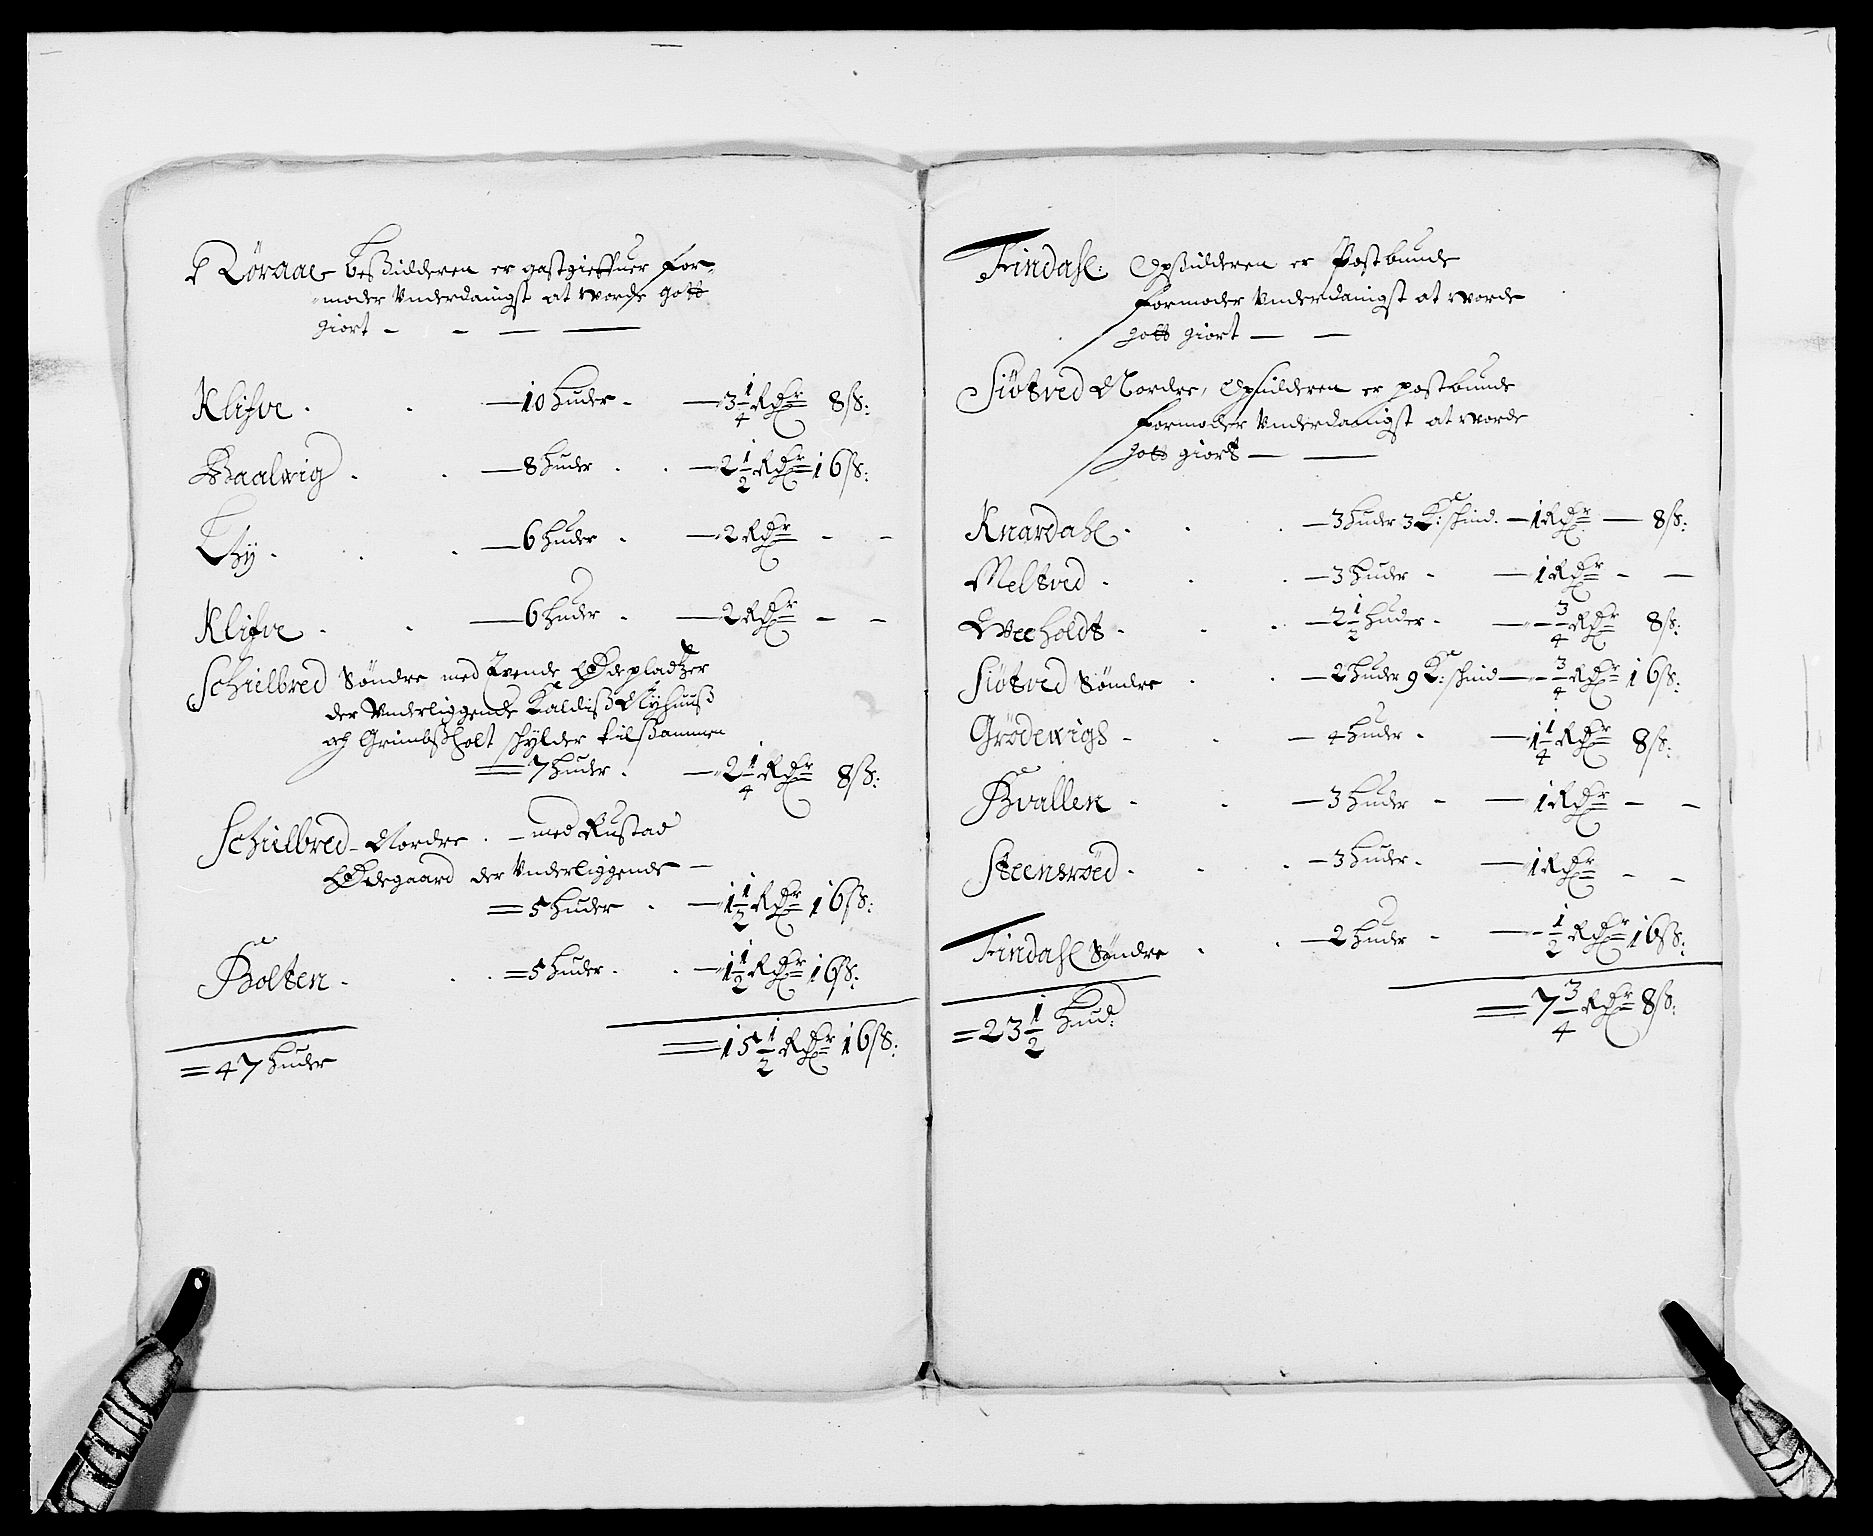 Röraae besidderen er gastgieffuer For-
moder Vnderdanigst at worde gott
giort - - — —
Klifve . . — 10 huder - — 3 1/4 Rdr 8 ß:
Baalwig . . — 8 huder . . — 2 1/2 Rdr 16 ß:
Thÿ . . . — 6 huder - — 2 Rdr - -
Klifve . . — 6 huder . — 2 Rdr - -
Schielbred Søndre med Tvende Ødepladtzer
der Vnderliggende Kaldiß Nyhuuß
och Grimbßholt schylder tilsammen
= 7 huder . — 2 1/4 Rdr 8 ß:
Schielbred - Nordre . - med Rustad
Ødegaard der Vnderliggende —
= 5 huder . — 1 1/2 Rdr 16 ß:
Bolten . . . = 5 huder . . — 1 1/2 Rdr 16 ß:
= 47 huder = 15 1/2 Rdr 16 ß:
Findahl: Opsidderen er Postbunde
formoder Vnderdanigst at worde
gott giort — —
Siötved Nordre, Opsidderen er postbunde
formoder Vnderdanigst at worde
gott giort — —
Knardahl . . . — 3 huder 3 K: schind. — 1 Rdr — 8 ß:
Meltved . . . — 3 huder - — 1 Rdr - —
Weeholdt . . . — 2 1/2 huder - — 3/4 Rdr 8 ß:
Siötved Søndre . . — 2 huder 9 K: schind — 3/4 Rdr 16 ß:
Grödewigs - . — 4 huder - — 1 1/4 Rdr 8 ß:
Bvallen - . — 3 huder - — 1 Rdr - -
Steensröed . . . — 3 huder - — 1 Rdr - -
Findahl Søndre . . — 2 huder - — 1/2 Rdr 16 ß:
= 23 1/2 hud: = 7 3/4 Rdr 8 ß: